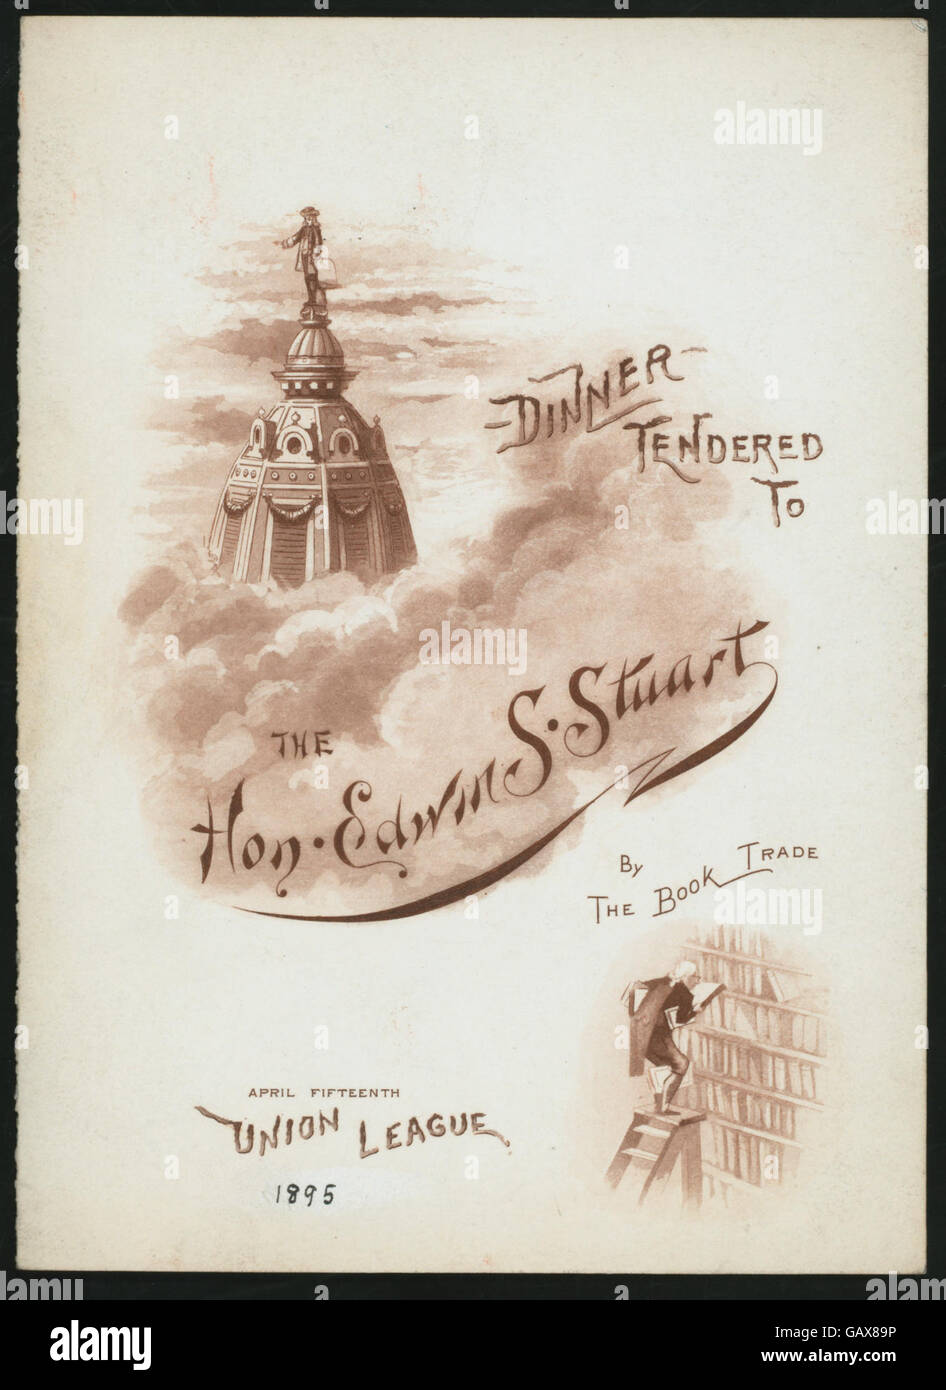 DINNER
TENDERED
TO
THE
Hon. Edwin S. Stuart
BY
THE BOOK TRADE
APRIL FIFTEENTH
UNION LEAGUE
1895
alamy
a
a
alamy
a
a
alamy
a
a
alamy
a
a
alamy
alamy
Image ID: GAX89P
www.alamy.com